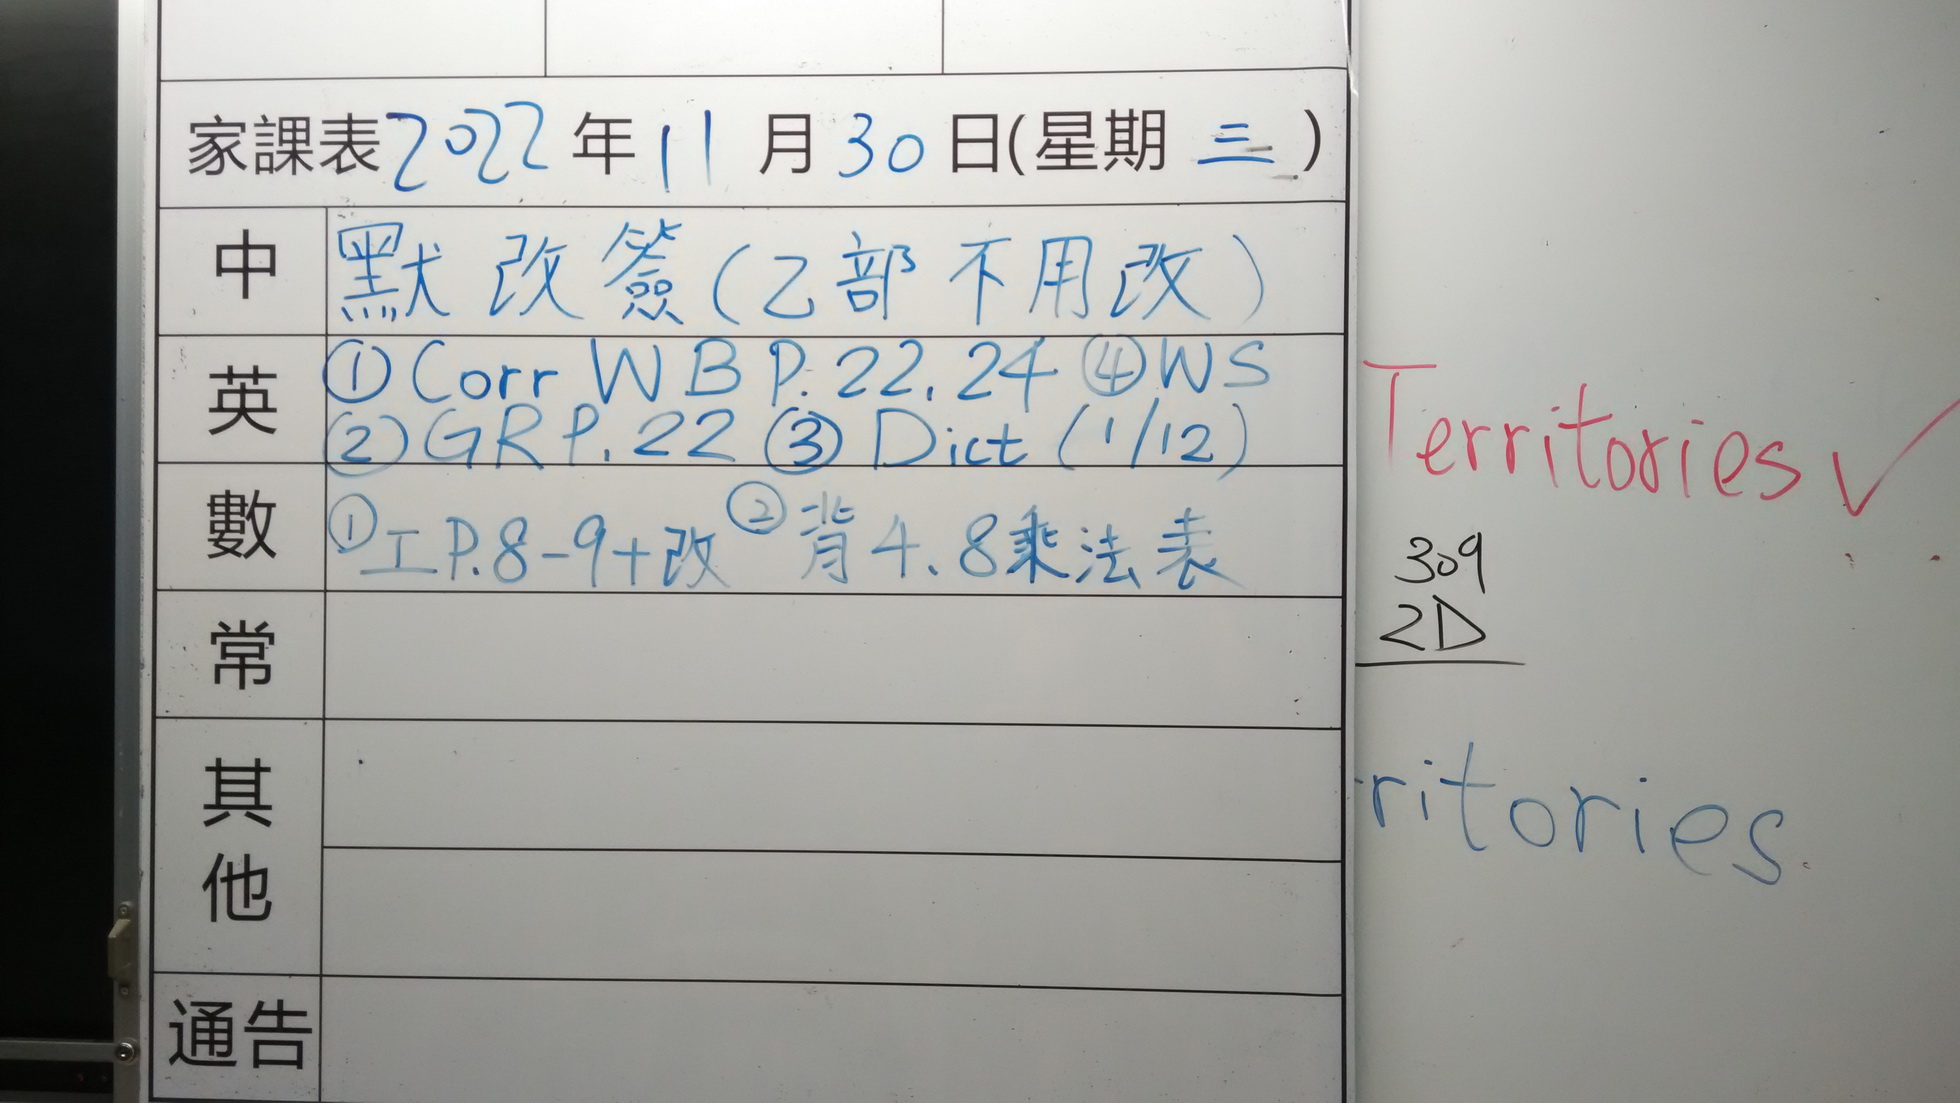 家課表2022年11月30日(星期三)
中 默改簽(乙部不用改)
英 ①Corr WB P.22,24 ④WS
②GR P.22 ③Dict (1/12)
數 ①工P.8-9+改 ②背4、8乘法表
常
其他
通告
Territories ✓
309
2D
ritories